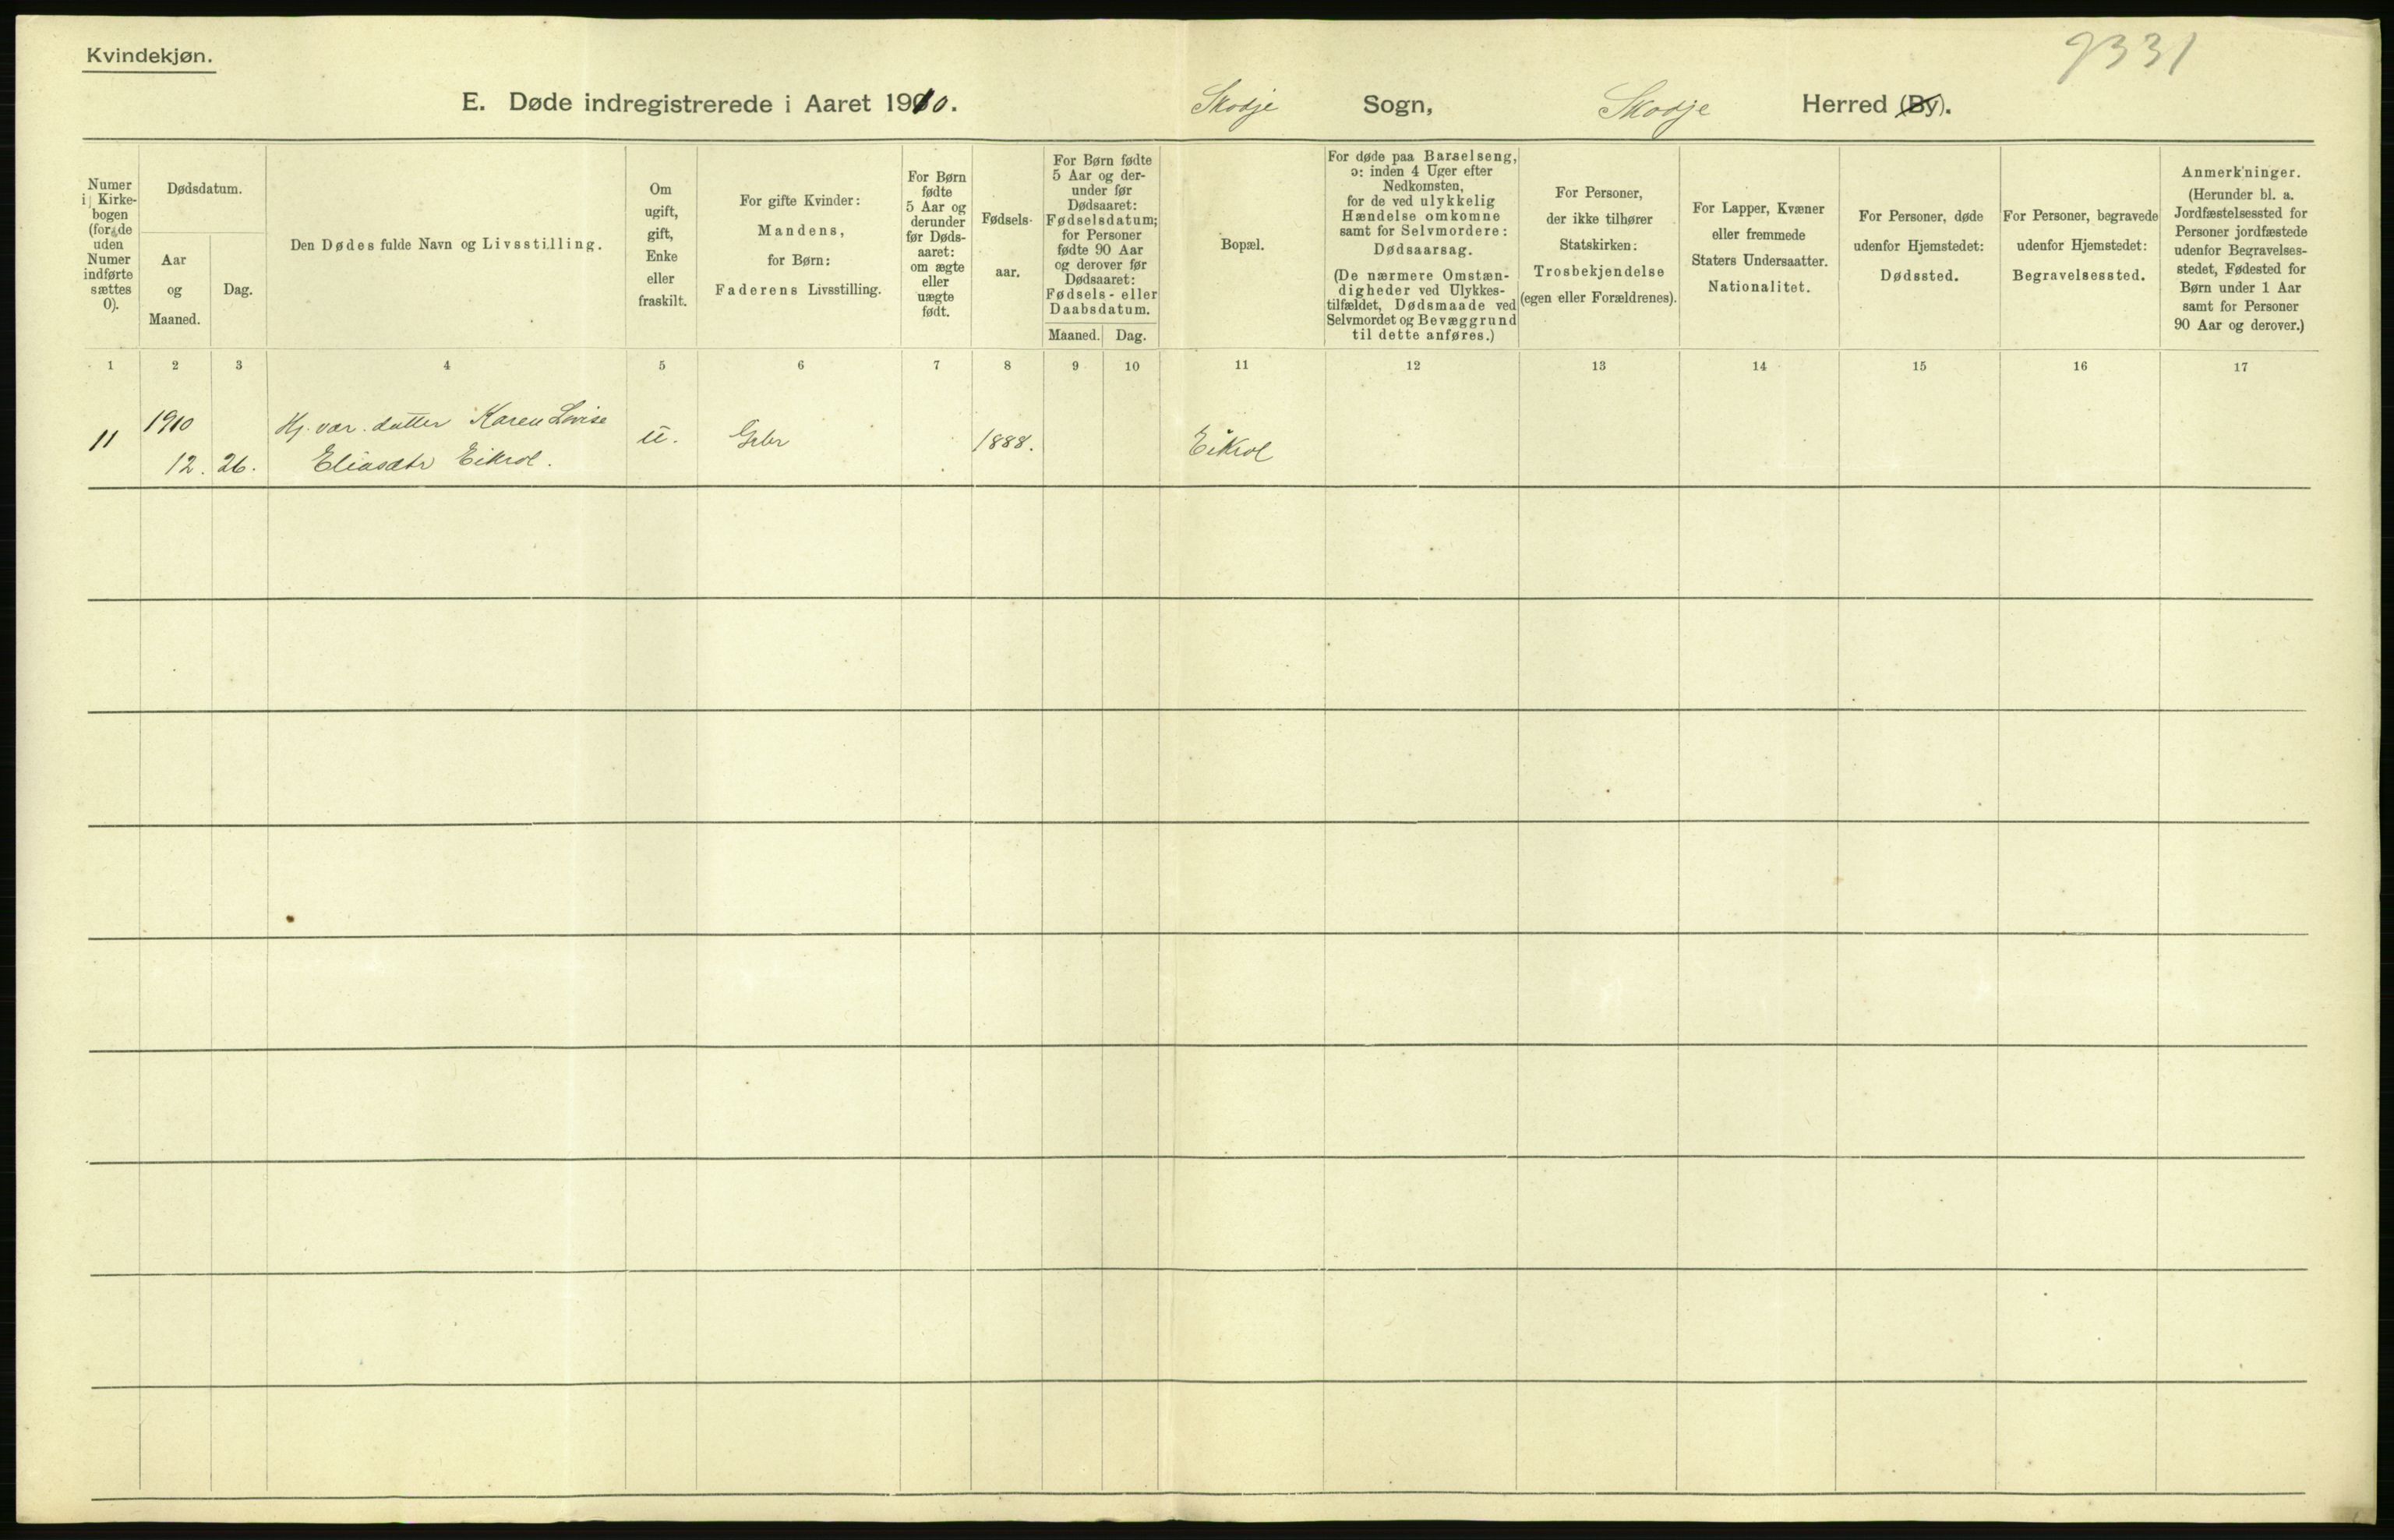 Kvindekjøn.
9331
E. Døde indregistrerede i Aaret 1910. Skodje Sogn, Skodje Herred (By).
Numer
i Kirke-
bogen
(for de
uden
Numer
indførte
sættes
0).
Dødsdatum.
Aar
og
Maaned.
Dag.
Den Dødes fulde Navn og Livsstilling.
Om
ugift,
gift,
Enke
eller
fraskilt.
For gifte Kvinder:
Mandens,
for Børn:
Faderens Livsstilling.
For Børn
fødte
5 Aar og
derunder
før Døds-
aaret:
om ægte
eller
uægte
født.
Fødsels-
aar.
For Børn fødte
5 Aar og der-
under før
Dødsaaret:
Fødselsdatum;
for Personer
fødte 90 Aar
og derover før
Dødsaaret:
Fødsels- eller
Daabsdatum.
Maaned. Dag.
Bopæl.
For døde paa Barselseng,
ɔ: inden 4 Uger efter
Nedkomsten,
for de ved ulykkelig
Hændelse omkomne
samt for Selvmordere:
Dødsaarsag.
(De nærmere Omstæn-
digheder ved Ulykkes-
tilfældet, Dødsmaade ved
Selvmordet og Bevæggrund
til dette anføres.)
For Personer,
der ikke tilhører
Statskirken:
Trosbekjendelse
(egen eller Forældrenes).
For Lapper, Kvæner
eller fremmede
Staters Undersaatter.
Nationalitet.
For Personer, døde
udenfor Hjemstedet:
Dødssted.
For Personer, begravede
udenfor Hjemstedet:
Begravelsessted.
Anmerkninger.
(Herunder bl. a.
Jordfæstelsessted for
Personer jordfæstede
udenfor Begravelses-
stedet, Fødested for
Børn under 1 Aar
samt for Personer
90 Aar og derover.)
1 2 3 4 5 6 7 8 9 10 11 12 13 14 15 16 17
11 1910 Hj. vær. datter Karen Lovise u. Gbr 1888. Eikrol
12. 26. Eliasdtr Eikrol.